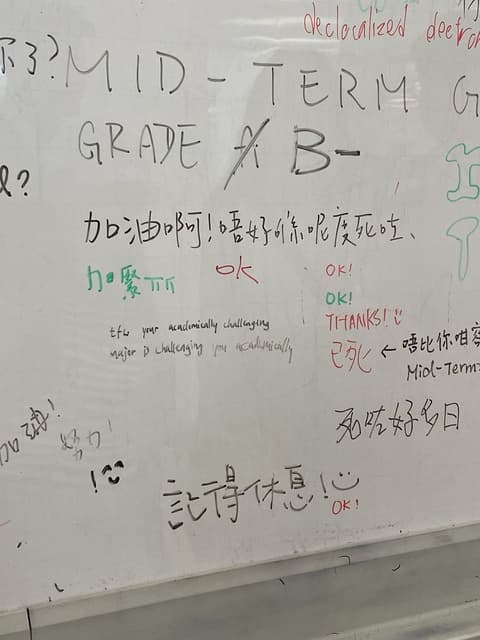 declocalized electron
了?
MID-TERM G
GRADE A B-
?
加油啊!唔好係呢度死咗、
加緊 OK OK!
OK!
tfw your academically challenging THANKS!
major is challenging you academically
已死 ← 唔比你咁
Mid-Term
死咗好多日
加油!
努力!
!
記得休息!
OK!